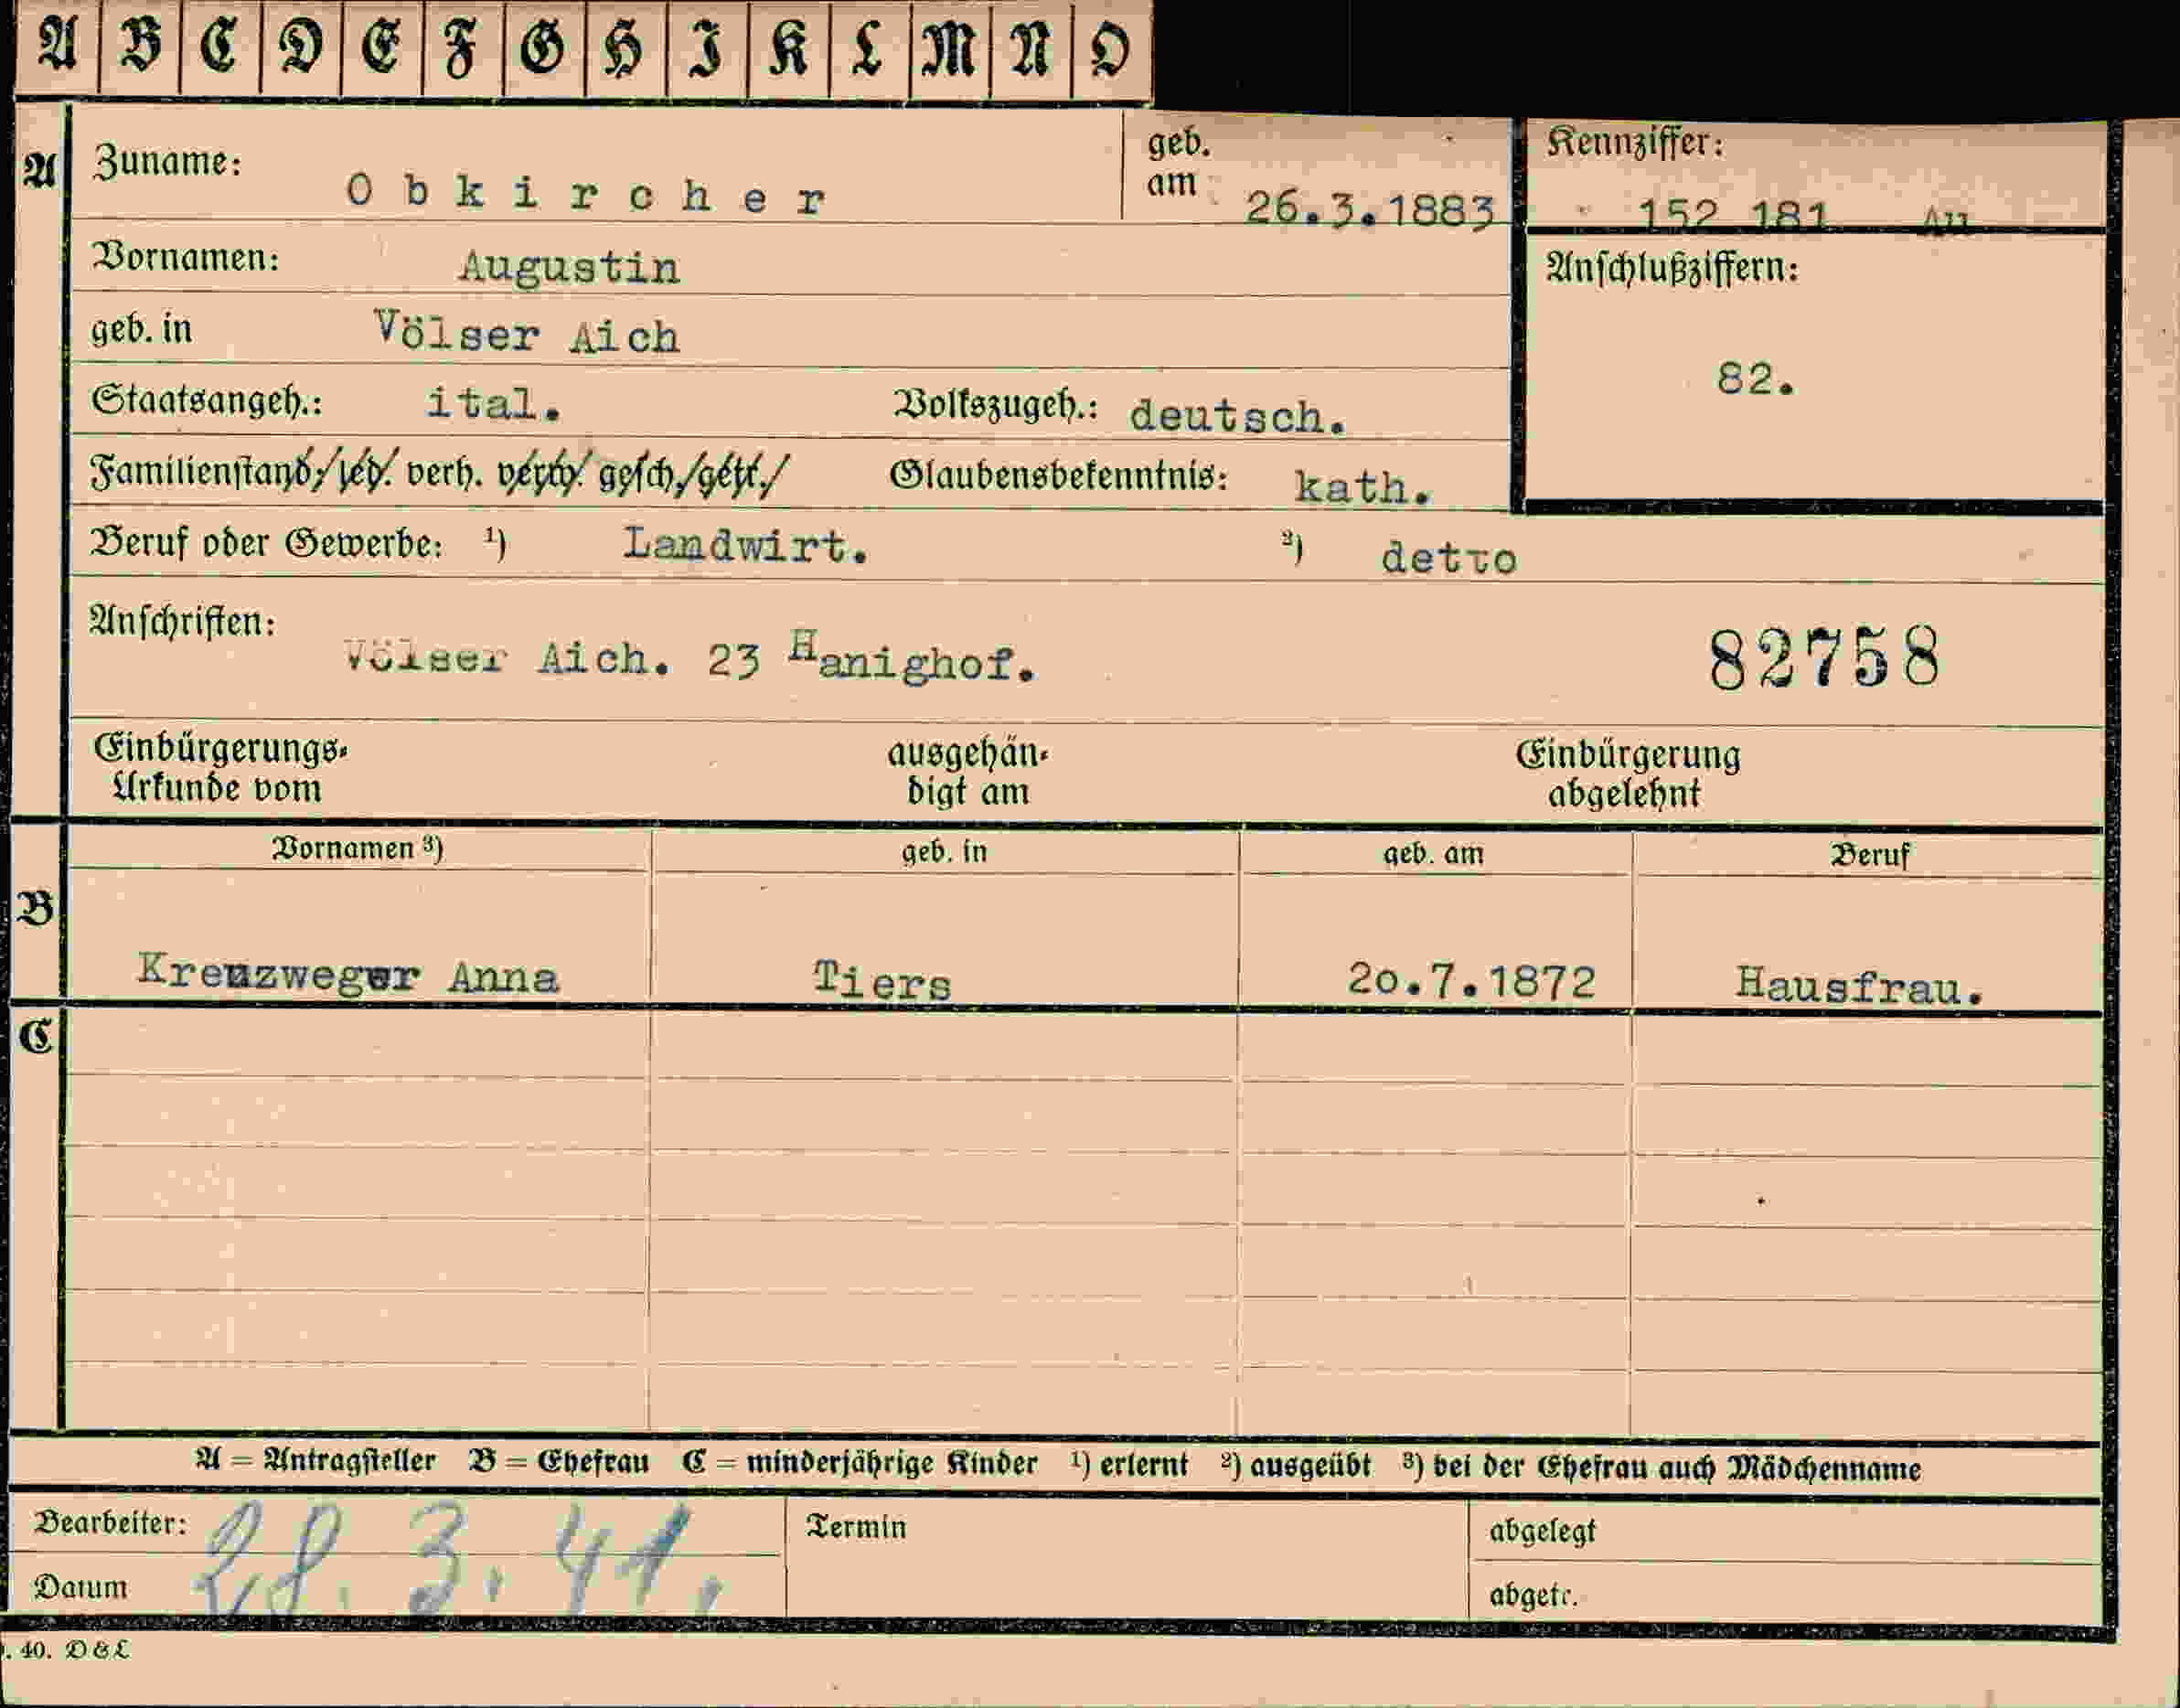 A B C D E F G H I K L M N O
A Zuname: Obkircher geb. am 26.3.1883 Kennziffer: 152 181 An
Vornamen: Augustin Anschlußziffern:
geb. in Völser Aich
82.
Staatsangeh.: ital. Volkszugeh.: deutsch.
Familienstand: led. verh. verw. gesch. getr. Glaubensbekenntnis: kath.
Beruf oder Gewerbe: ¹) Landwirt. ²) detto
Anschriften: Völser Aich. 23 Hanighof. 82758
Einbürgerungs- ausgehän- Einbürgerung
Urkunde vom digt am abgelehnt
Vornamen ³) geb. in geb. am Beruf
B
Kreuzweger Anna Tiers 20.7.1872 Hausfrau.
C
A = Antragsteller B = Ehefrau C = minderjährige Kinder ¹) erlernt ²) ausgeübt ³) bei der Ehefrau auch Mädchenname
Bearbeiter: 28.3.41. Termin abgelegt
Datum abgetr.
. 40. D & L